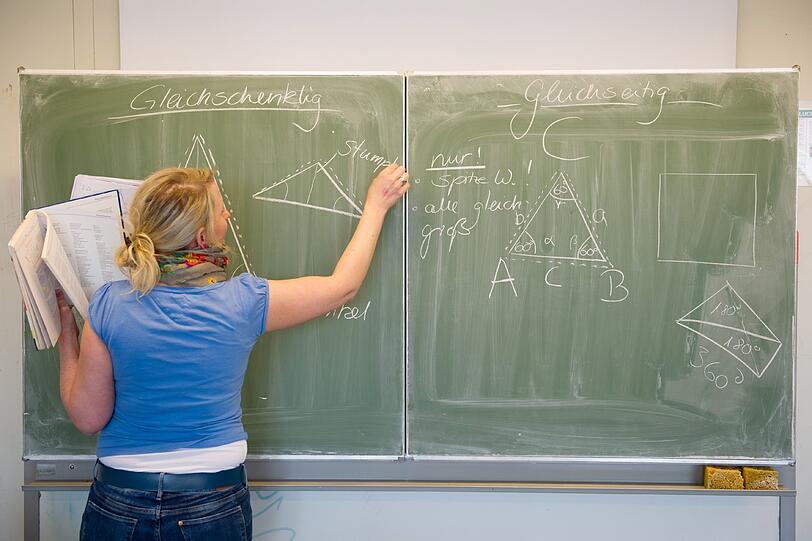 Gleichschenklig
Stump
Gleichseitig
nur!
• spitze W.!
• alle gleich
groß
C
60°
γ
b
a
60°
α
β
60°
A
c
B
180°
180°
360°